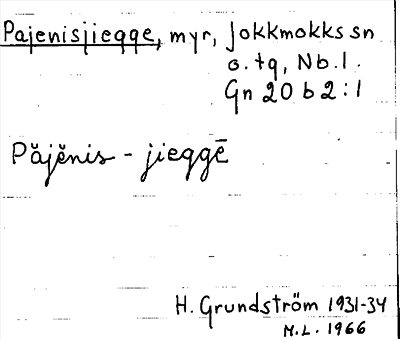 Pajenisjiegge, myr, Jokkmokks sn
o. tg, Nb. l.
Gn 20 b 2 : 1
Påjĕnis - jieggē
H. Grundström 1931-34
M.L. 1966